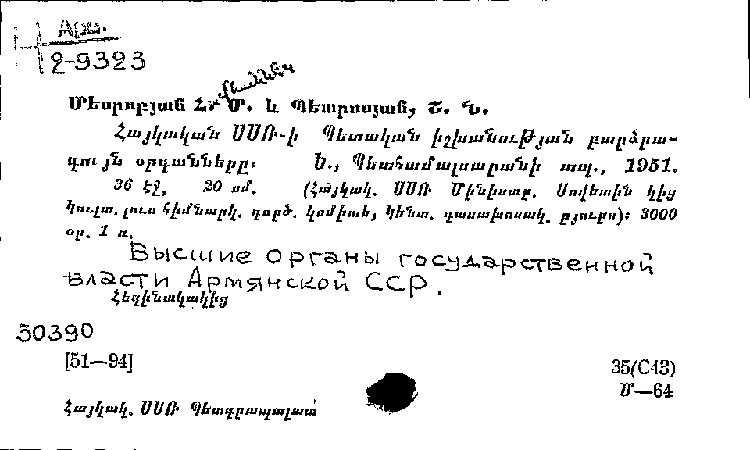 2-9323
Մեսրոբյան Հր Մ. և Պետրոսյան, Շ. Ն.
Հայկական ՍՍՌ-ի Պետական իշխանության բարձրա-
գույն օրգանները։ Ե., Պետհամալսարանի տպ., 1951.
36 էջ, 20 սմ. (Հայկակ. ՍՍՌ Մինիստր. Սովետին կից
կուլտ. լուս հիմնարկ. գործ. կոմիտե, կենտ. դասախոսակ. բյուրո)։ 3000
օր. 1 ռ.
Высшие органы государственной
власти Армянской ССР.
Հեղինակակից
30390
[51—94]
35(С43)
Մ—64
Հայկակ. ՍՍՌ Պետգրապալատ